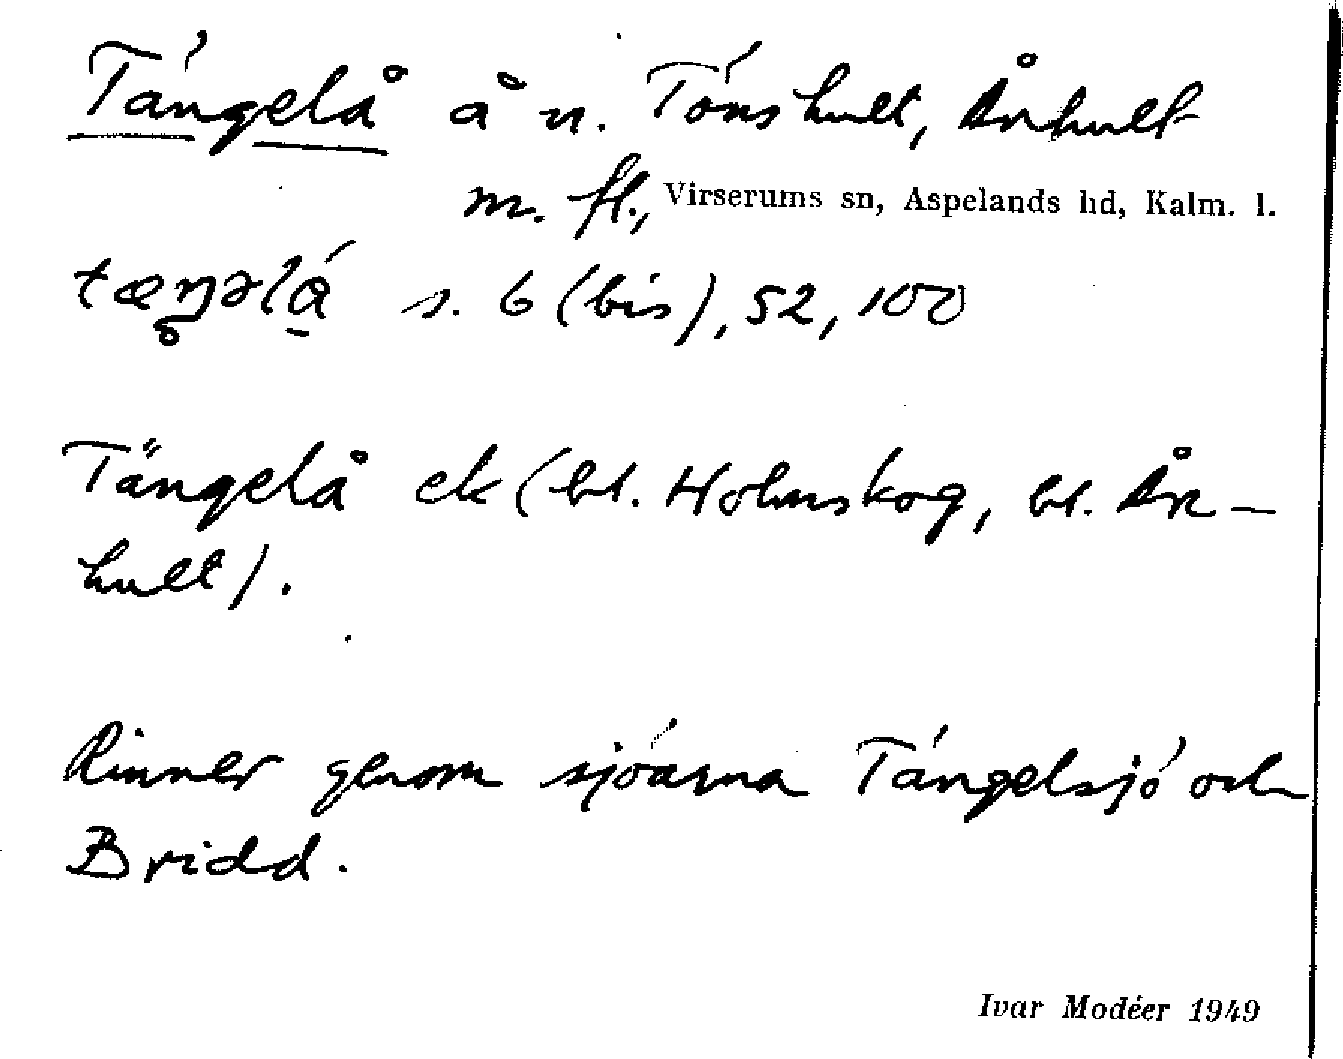 Tängelå å n. Tönshult, Århult
m. fl., Virserums sn, Aspelands hd, Kalm. l.
s. 6 (bis), 52, 100
Tängelå ek (bl. Holmskog, bl. År-
hult).
Rinner genom sjöarna Tängelsjö och
Bridd.
Ivar Modéer 1949